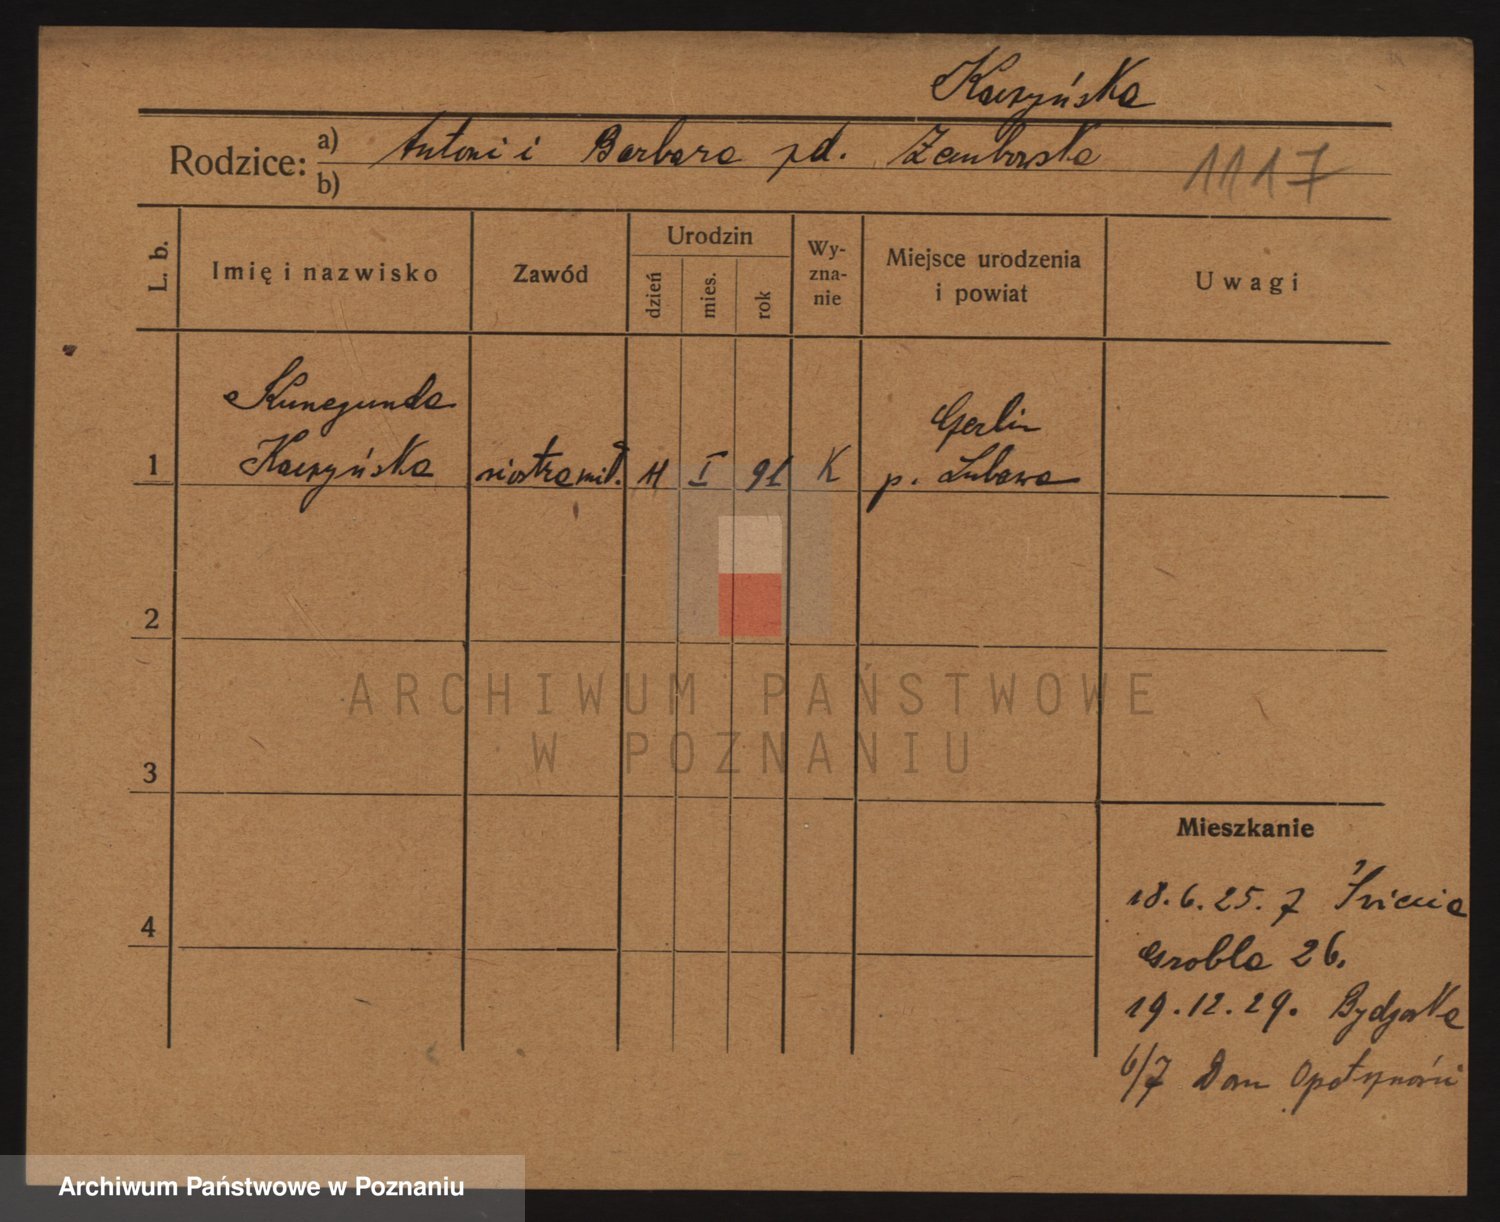 Kaczyńska
Rodzice: a) Antoni i Barbara zd. Zembrowska
b)
1117
L. b.
Imię i nazwisko
Zawód
Urodzin
dzień
mies.
rok
Wy-
zna-
nie
Miejsce urodzenia
i powiat
Uwagi
Kunegunda
1 Kaczyńska siostra mił. 11 I 91 K
Gerlin
p. Lubawa
2
ARCHIWUM PAŃSTWOWE
W POZNANIU
3
4
Mieszkanie
18.6.25. z
Grobla 26.
19.12.29. Bydgoska
6/7 Dom Opatrzności
Archiwum Państwowe w Poznaniu